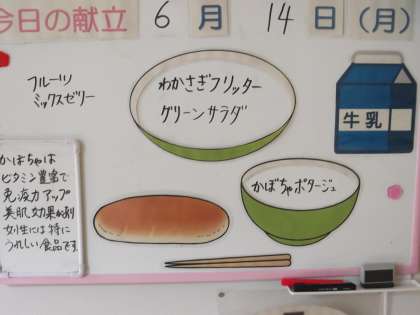 今日の献立 6月 14日(月)
フルーツ
ミックスゼリー
わかさぎフリッター
グリーンサラダ
牛乳
かぼちゃポタージュ
かぼちゃは
ビタミン豊富で
免疫力アップ
美肌効果が有り
女性には特に
うれしい食品です